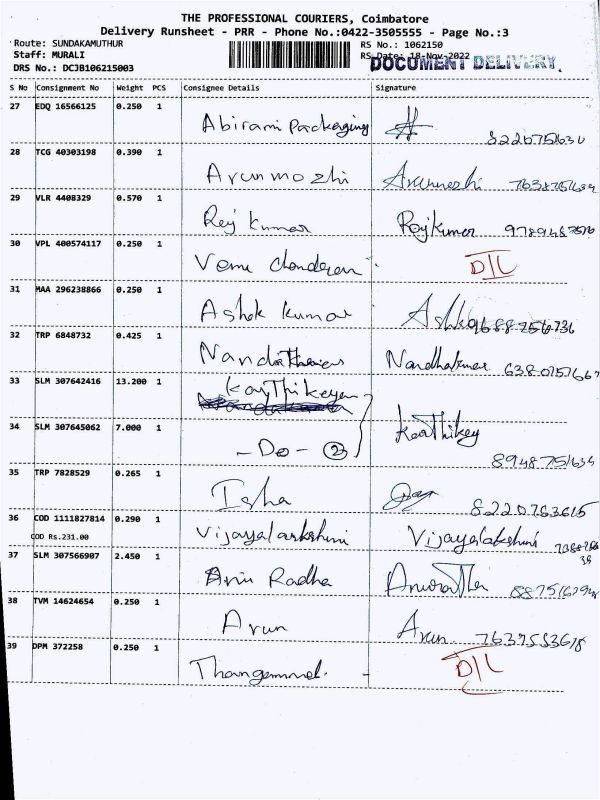 THE PROFESSIONAL COURIERS, Coimbatore
Delivery Runsheet - PRR - Phone No.:0422-3505555 - Page No.:3
Route: SUNDAKAMUTHUR RS No.: 1062150
Staff: MURALI RS Date: 18-Nov-2022
DRS No.: DCJB106215003 DOCUMENT DELIVERY
S No Consignment No Weight PCS Consignee Details Signature
27 EDQ 16566125 0.250 1 Abirami Packaging
28 TCG 40303198 0.390 1 Arunmozhi
29 VLR 4408329 0.570 1 Raj kumar Rajkumar
30 VPL 400574117 0.250 1 D/L
31 MAA 296238866 0.250 1 Ashok kumar
32 TRP 6848732 0.425 1
33 SLM 307642416 13.200 1 Karthikeyan
34 SLM 307645062 7.000 1 - Do - 2 Karthikey
35 TRP 7828529 0.265 1 Isha 8220783615
36 COD 1111827814 0.290 1 Vijayalakshmi
COD Rs.231.00
37 SLM 307566907 2.450 1 Anu Radha
38 TVM 14624654 0.250 1 Arun Arun
39 DPM 372258 0.250 1 D/L